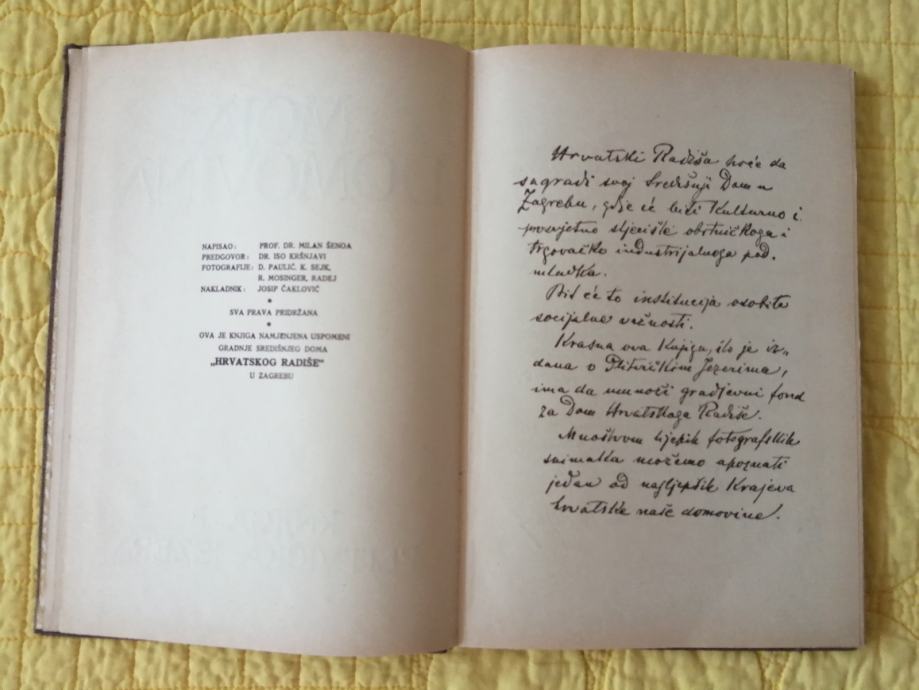 NAPISAO: PROF. DR. MILAN ŠENOA
PREDGOVOR: DR. ISO KRŠNJAVI
FOTOGRAFIJE: D. PAULIĆ, K. SEJK,
R. MOSINGER, RADEJ
NAKLADNIK: JOSIP ČAKLOVIĆ
*
SVA PRAVA PRIDRŽANA
*
OVA JE KNJIGA NAMJENJENA USPOMENI
GRADNJE SREDIŠNJEG DOMA
„HRVATSKOG RADIŠE"
U ZAGREBU
Hrvatski Radiša hoće da
sagradi svoj Središnji Dom u
Zagrebu, gdje će biti kulturno i
prosvjetno stjecište obrtničkoga i
trgovačko industrijalnoga pod„
mlatka.
Bit će to institucija osobite
socijalne važnosti.
Krasna ova Knjiga, što je iz„
dana o Plitvičkim Jezerima,
ima da umnoži gradjevni fond
za Dom Hrvatskoga Radiše.
Mnoštvom lijepih fotografskih
snimaka možemo upoznati
jedan od najljepših Krajeva
hrvatske naše domovine.